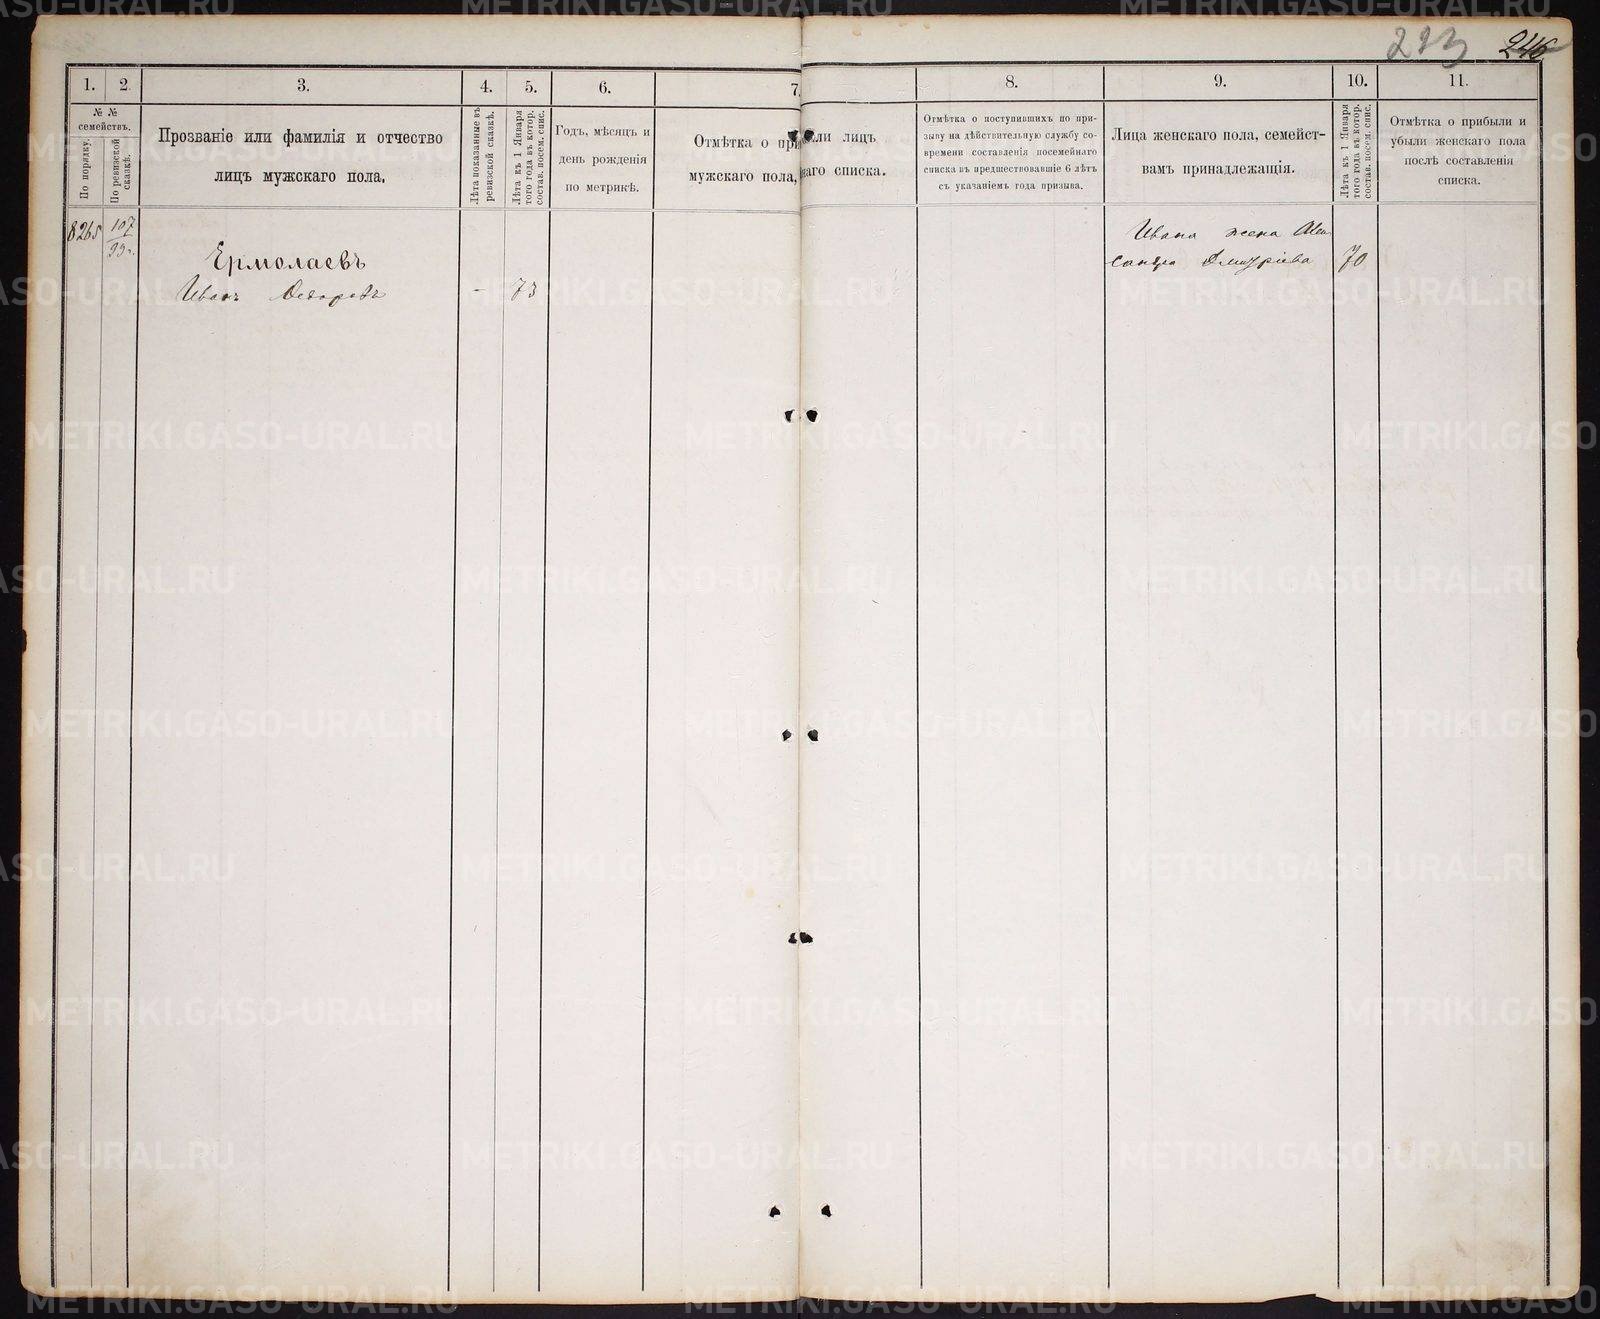 223 246
1. 2. 3. 4. 5. 6. 7. 8. 9. 10. 11.
№ № семействъ.
По порядку.
По ревизской сказкѣ.
Прозваніе или фамилія и отчество
лицъ мужскаго пола.
Лѣта показанные въ
ревизской сказкѣ.
Лѣта къ 1 Января
того года въ котор.
состав. посем. спис.
Годъ, мѣсяцъ и
день рожденія
по метрикѣ.
Отмѣтка о при
мужскаго пола,
ли лицъ
наго списка.
Отмѣтка о поступившихъ по при-
зыву на дѣйствительную службу со-
времени составленія посемейнаго
списка въ предшествовавшіе 6 лѣтъ
съ указаніемъ года призыва.
Лица женскаго пола, семейст-
вамъ принадлежащія.
Лѣта къ 1 Января
того года въ котор.
состав. посем. спис.
Отмѣтка о прибыли и
убыли женскаго пола
послѣ составленія
списка.
8265 107
93 г.
Ермолаевъ
Иванъ Ѳедоровъ - 73
Ивана жена Алек
сандра Дмитріева 70
METRIKI.GASO-URAL.RU